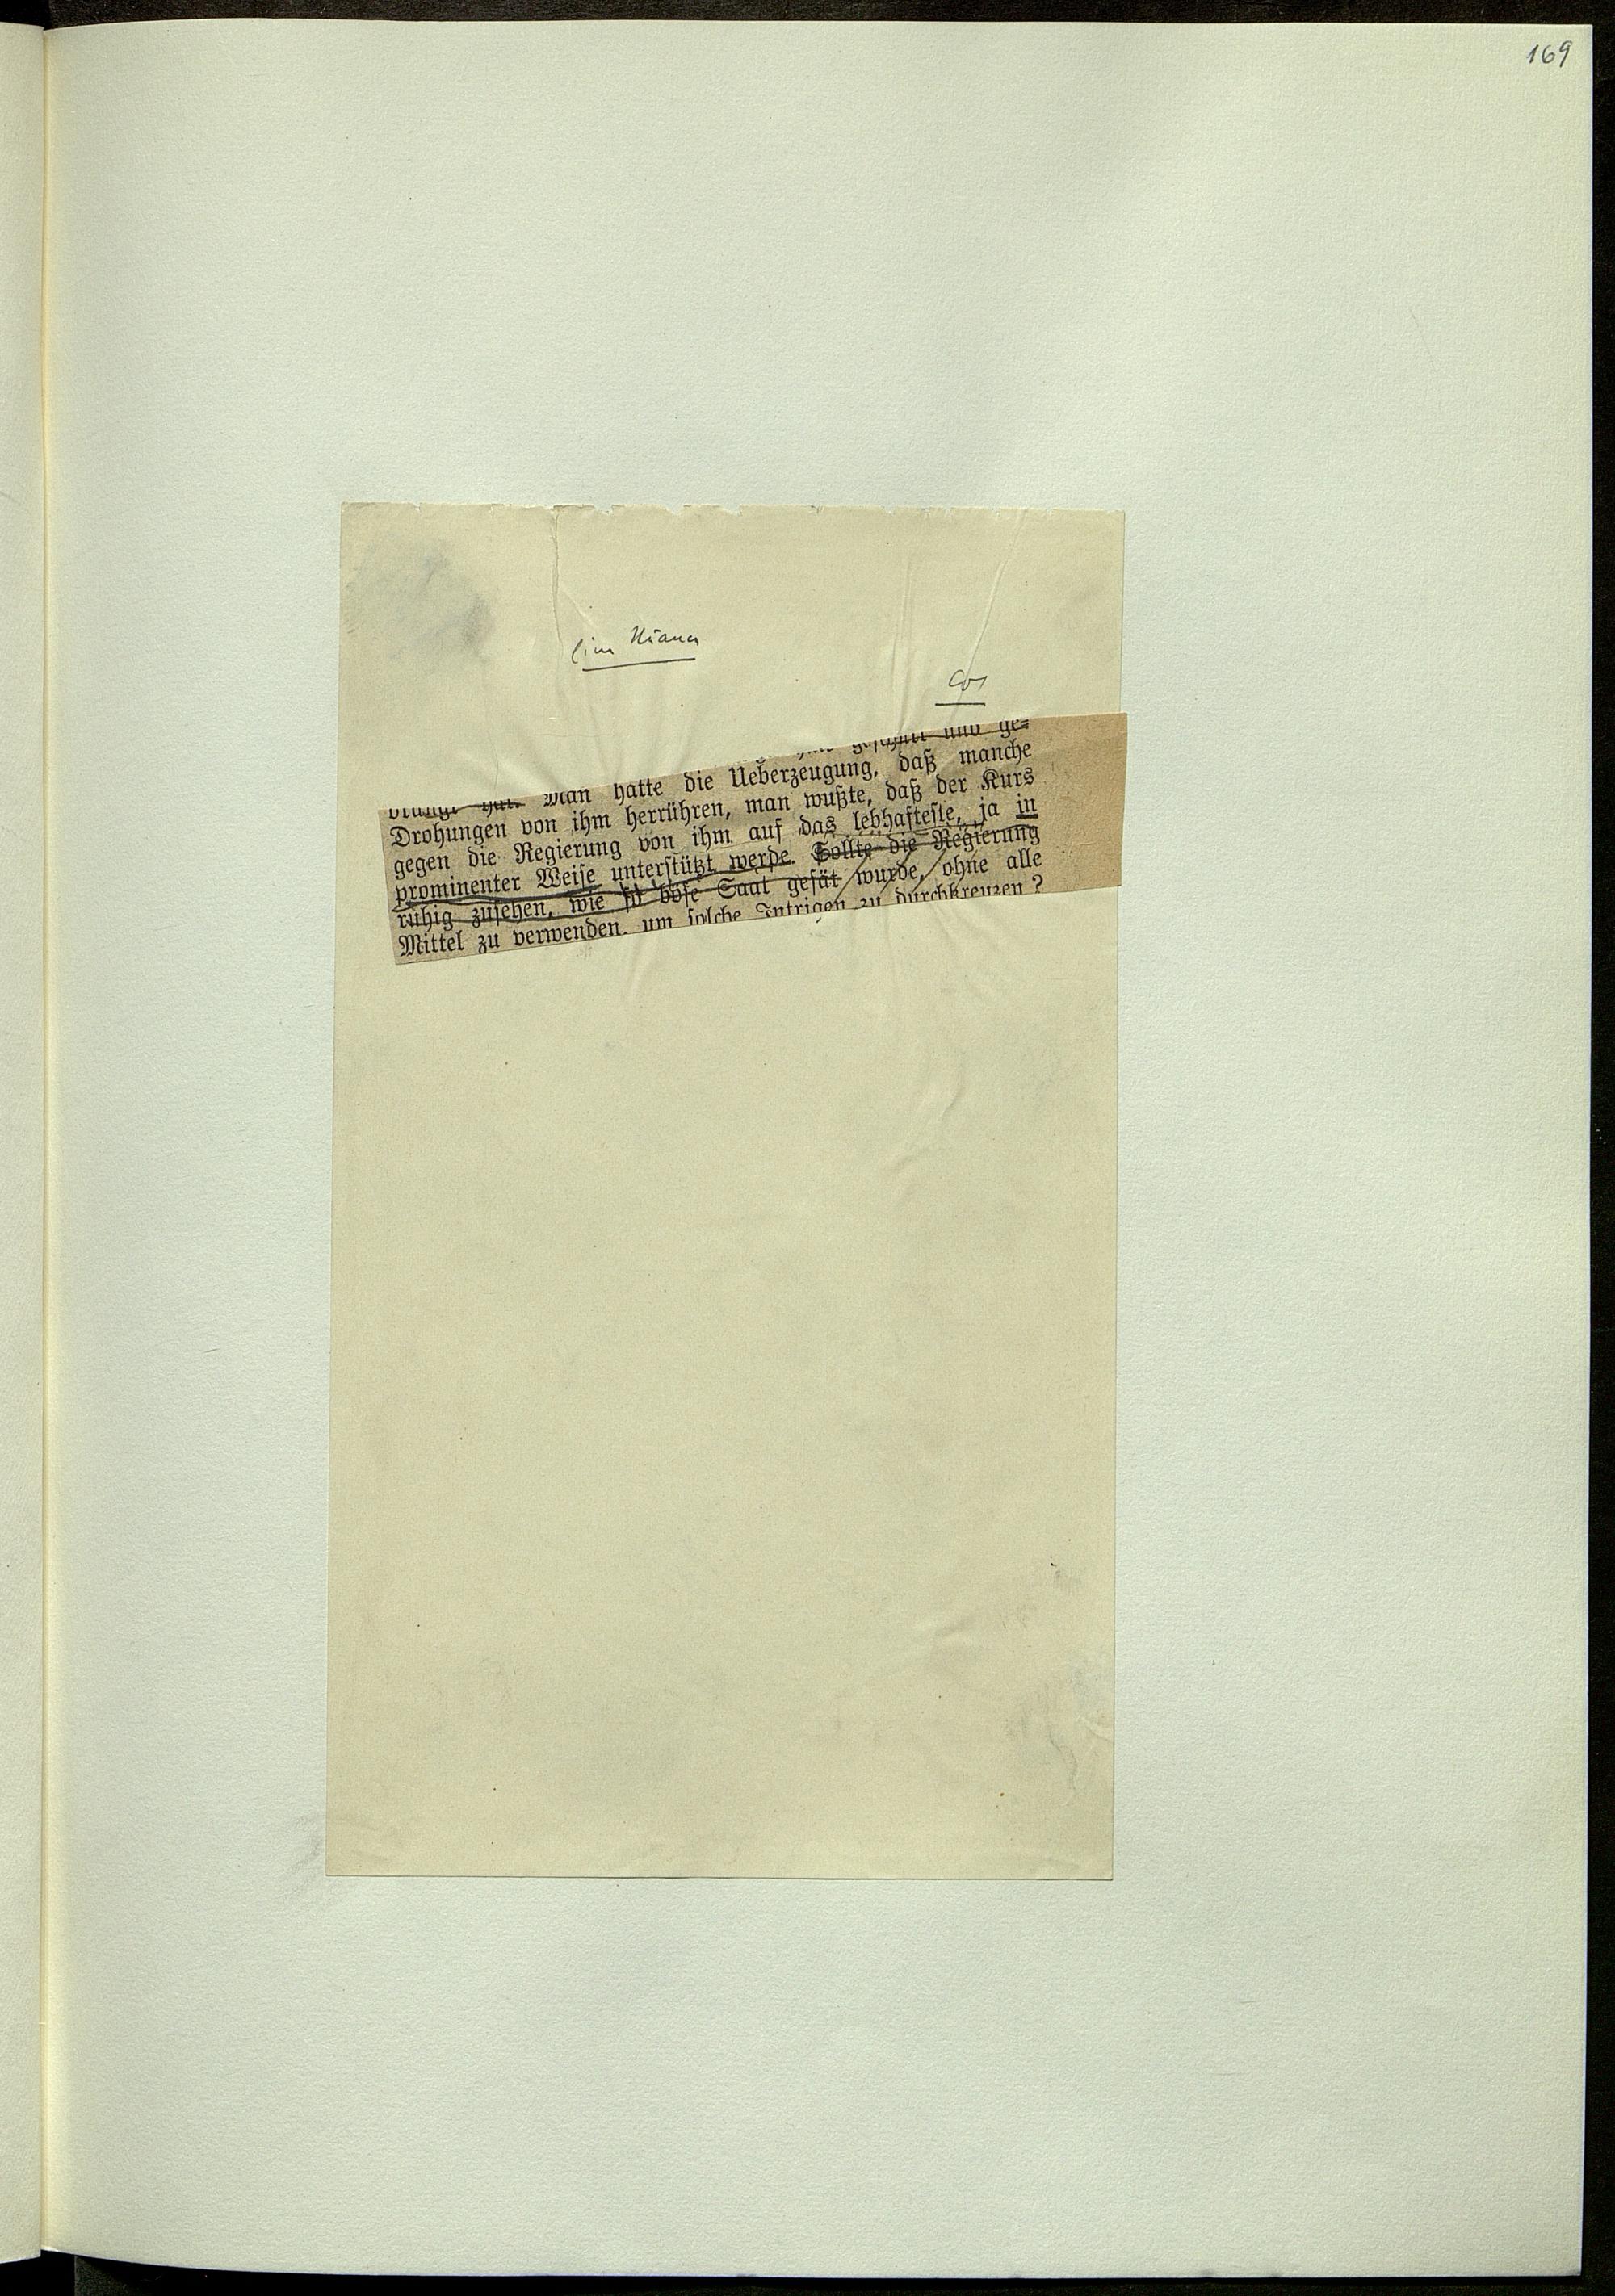 169
Cos
geschürt und ge=
drängt hat. Man hatte die Ueberzeugung, daß manche
Drohungen von ihm herrühren, man wußte, daß der Kurs
gegen die Regierung von ihm auf das lebhafteste, ja in
prominenter Weise unterstützt werde. Sollte die Regierung
ruhig zusehen, wie so böse Saat gesät wurde, ohne alle
Mittel zu verwenden, um solche Intrigen zu durchkreuzen?